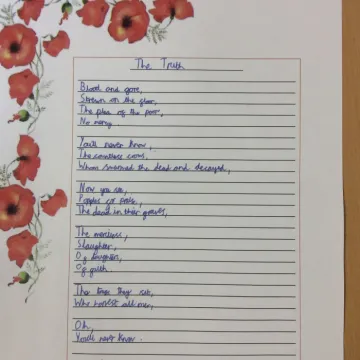 The Truth
Blood and gore,
Strewn on the floor,
The plea of the poor,
No mercy.
You'll never know,
The countless crows,
Whom swarmed the dead and decayed,
Now you see,
Poppies for
The dead in their graves,
The merciless,
Slaughter,
Of laughter,
Of
The they
Who all men,
Oh,
You'll never know.